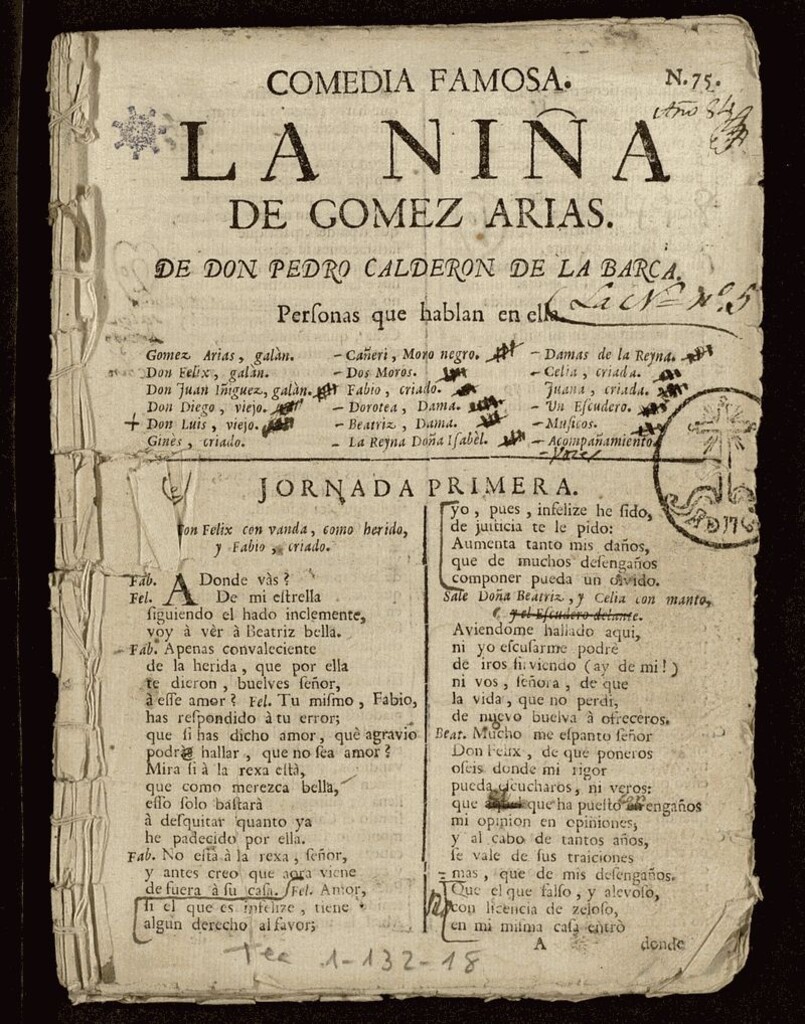 COMEDIA FAMOSA.
N. 75.
LA NIÑA
DE GOMEZ ARIAS.
DE DON PEDRO CALDERON DE LA BARCA.
Perſonas que hablan en ella.
Gomez Arias, galàn.
Don Felix, galàn.
Don Juan Iñiguez, galàn.
Don Diego, viejo.
+ Don Luis, viejo.
Ginès, criado.
- Cañeri, Moro negro.
- Dos Moros.
Fabio, criado.
- Dorotea, Dama.
- Beatriz, Dama.
- La Reyna Doña Iſabèl.
- Damas de la Reyna.
- Celia, criada.
Juana, criada.
- Un Eſcudero.
- Muſicos.
- Acompañamiento.
JORNADA PRIMERA.
on Felix con vanda, como herido,
y Fabio, criado.
Fab. ADonde vàs?
Fel. De mi eſtrella
ſiguiendo el hado inclemente,
voy à vèr à Beatriz bella.
- Fab. Apenas convaleciente
de la herida, que por ella
te dieron, buelves ſeñor,
à eſſe amor? Fel. Tu miſmo, Fabio,
has reſpondido à tu error;
que ſi has dicho amor, què agravio
podrè hallar, que no ſea amor?
Mira ſi à la rexa eſtà,
que como merezca bella,
eſſo ſolo baſtarà
à deſquitar quanto ya
he padecido por ella.
Fab. No eſtà à la rexa, ſeñor,
y antes creo que aora viene
de fuera à ſu caſa. Fel. Amor,
ſi el que es infelize, tiene
algun derecho al favor;
yo, pues, infelize he ſido,
de juiticia te le pido:
Aumenta tanto mis daños,
que de muchos deſengaños
componer pueda un olvido.
Sale Doña Beatriz, y Celia con manto,
y el Eſcudero delante.
Aviendome hallado aqui,
ni yo eſcuſarme podrè
de iros ſirviendo (ay de mi!)
ni vos, ſeñora, de que
la vida, que no perdi,
de nuevo buelva à ofreceros.
Beat. Mucho me eſpanto ſeñor
Don Felix, de que poneros
oſeis donde mi rigor
pueda eſcucharos, ni veros:
que que ha pueſto engaños
mi opinion en opiniones,
y al cabo de tantos años,
ſe vale de ſus traiciones
= mas, que de mis deſengaños.
Que el que falſo, y alevoſo,
con licencia de zeloſo,
en mi miſma caſa entrò
A donde
Tea 1-132-18